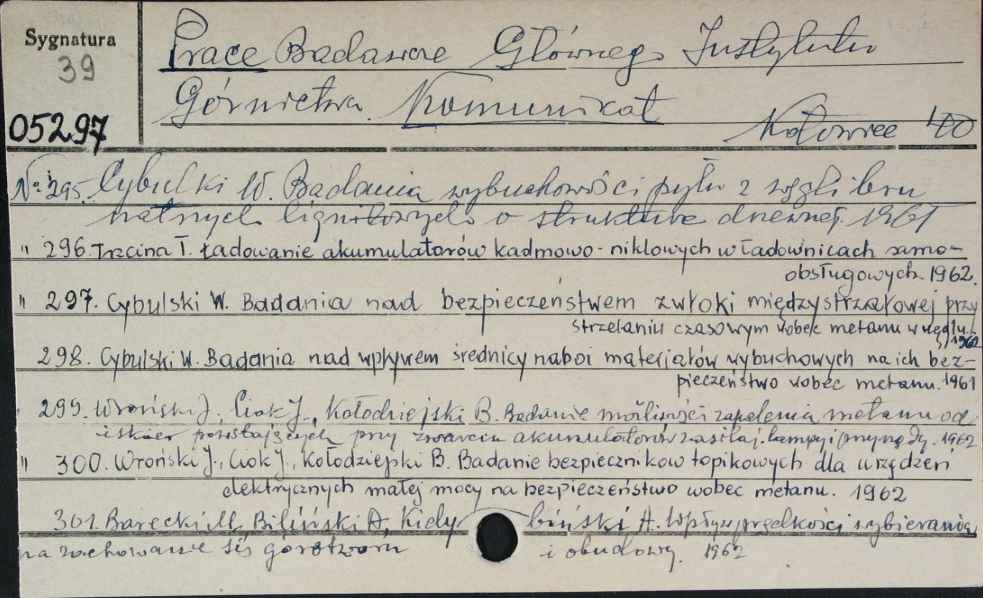 Sygnatura
39
05297
Prace Badawcze Głównego Instytutu
Górnictwa. Komunikat
Katowice
Nr 295. Cybulski W. Badania wybuchowości pyłu z węgli bru
natnych lignitowych o strukturze drzewnej. 1961
" 296. Trzcina T. Ładowanie akumulatorów kadmowo-niklowych w ładownicach samo-
obsługowych. 1962.
" 297. Cybulski W. Badania nad bezpieczeństwem zwłoki międzystrzałowej przy
strzelaniu czasowym wobec metanu w węglu. 1962
298. Cybulski W. Badania nad wpływem średnicy naboi materiałów wybuchowych na ich bez-
pieczeństwo wobec metanu. 1961
299. Wroński J., Ciok J., Kołodziejski B. Badanie możliwości zapalenia metanu od
iskier powstających przy zwarciu akumulatorów zasilaj. lampy i przyrządy. 1962
" 300. Wroński J., Ciok J., Kołodziejski B. Badanie bezpieczników topikowych dla urządzeń
elektrycznych małej mocy na bezpieczeństwo wobec metanu. 1962
301. Borecki M. Biliński A. Kidybiński A. Wpływ prędkości wybierania
na zachowanie się górotworu i obudowy. 1962